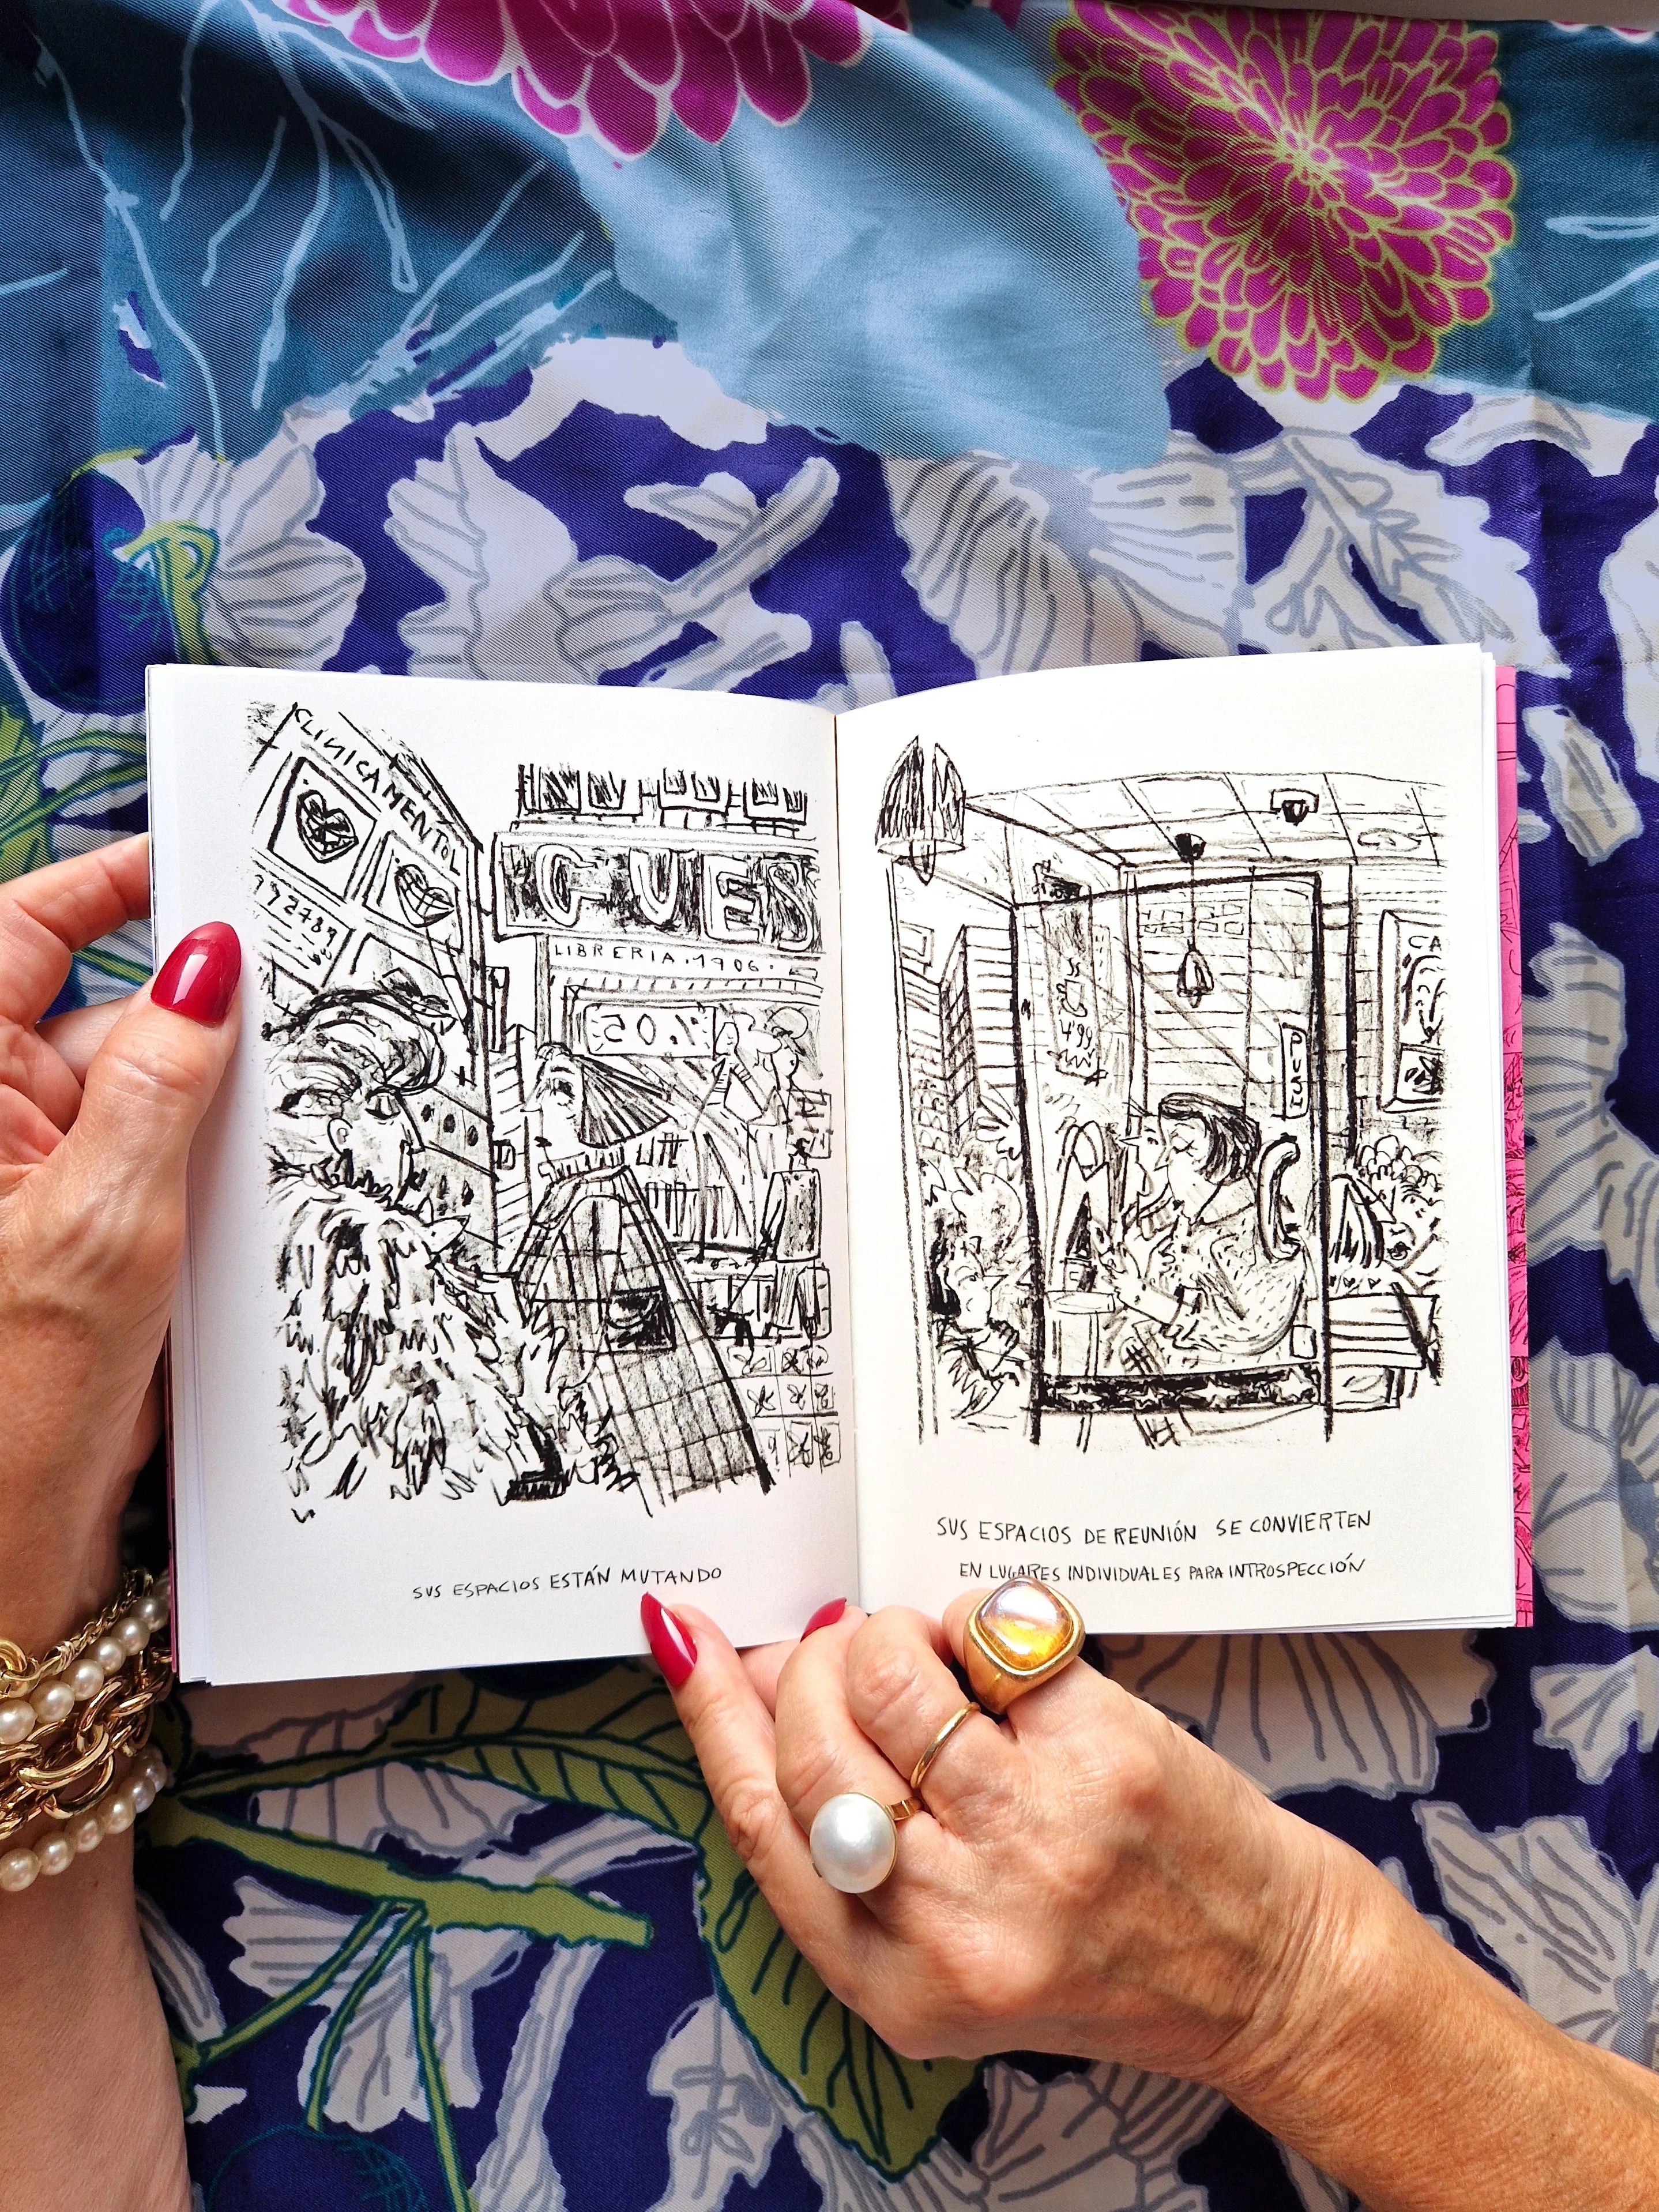 CLINICAMENTOL
992789
GUES
LIBRERIA.1906.
50%
SUS ESPACIOS ESTÁN MUTANDO
4'99
CA
SUS ESPACIOS DE REUNIÓN SE CONVIERTEN
EN LUGARES INDIVIDUALES PARA INTROSPECCIÓN